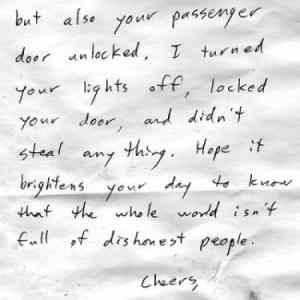 but also your passenger
door unlocked. I turned
your lights off, locked
your door, and didn't
steal any thing. Hope it
brightens your day to know
that the whole world isn't
full of dishonest people.
Cheers,